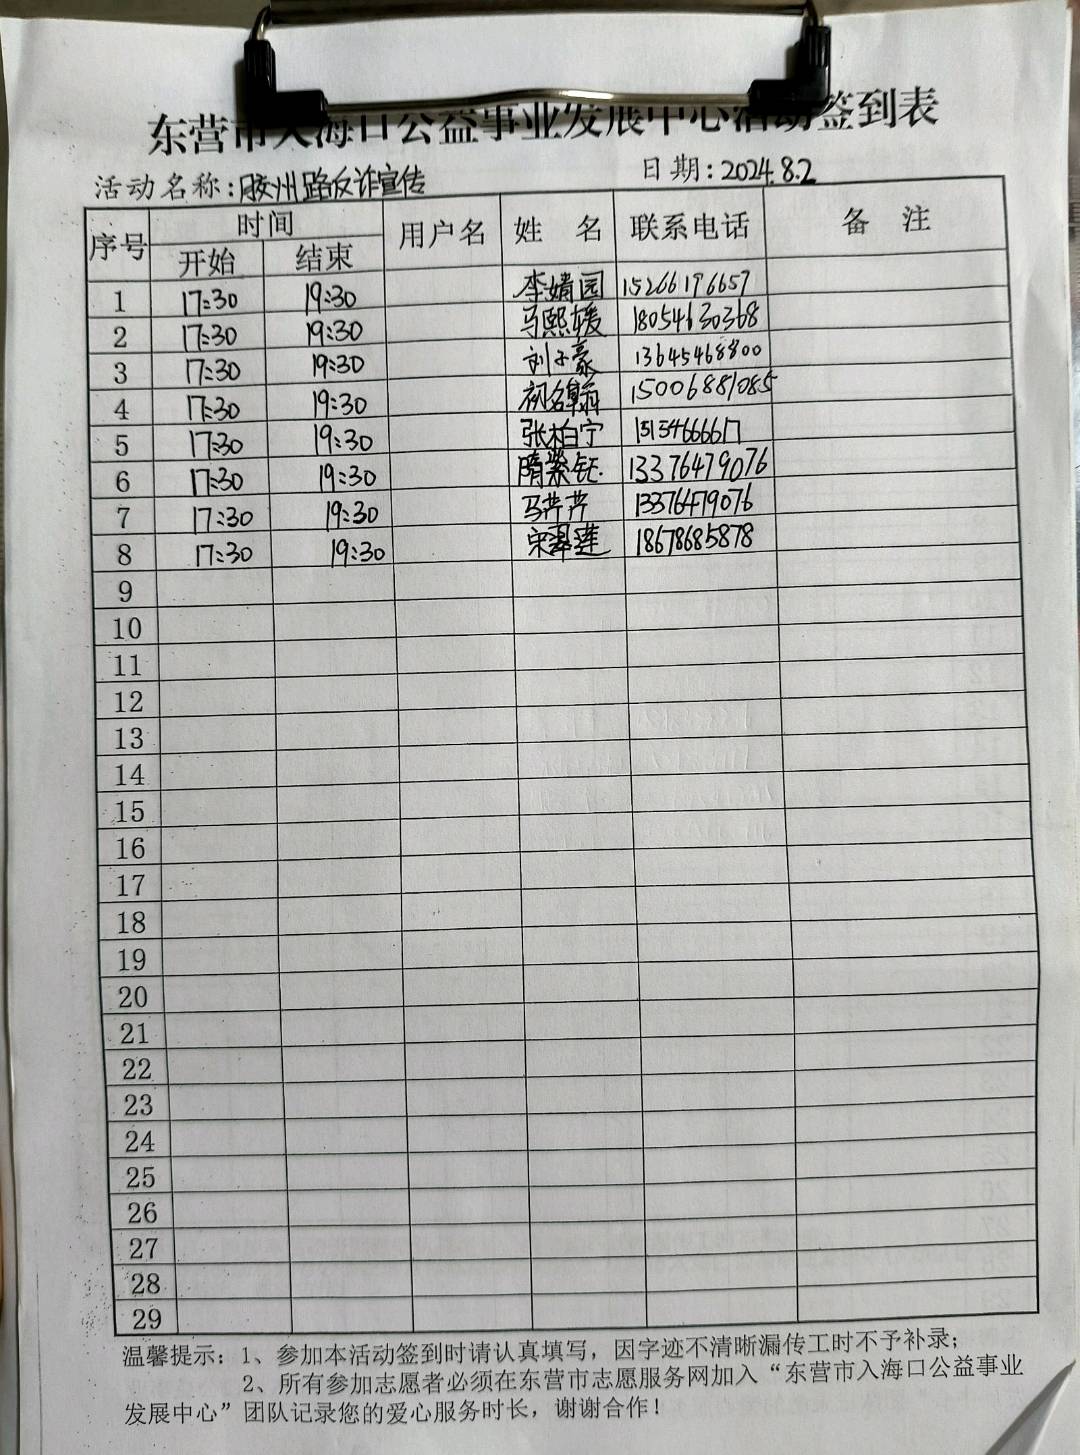 东营市入海口公益事业发展中心活动签到表
活动名称:胶州路反诈宣传 日期:2024.8.2
序号 时间 用户名 姓 名 联系电话 备 注
开始 结束
1 17:30 19:30 李婧园 15266196657
2 17:30 19:30 马熙媛 18054630368
3 17:30 19:30 刘子豪 13645468800
4 17:30 19:30 初名翰 15006881085
5 17:30 19:30 张柏宁 15154666617
6 17:30 19:30 隋紫钰 13376479076
7 17:30 19:30 马芹芹 13376479076
8 17:30 19:30 宋翠莲 18678685878
9
10
11
12
13
14
15
16
17
18
19
20
21
22
23
24
25
26
27
28
29
温馨提示:1、参加本活动签到时请认真填写,因字迹不清晰漏传工时不予补录;
2、所有参加志愿者必须在东营市志愿服务网加入“东营市入海口公益事业
发展中心”团队记录您的爱心服务时长,谢谢合作!